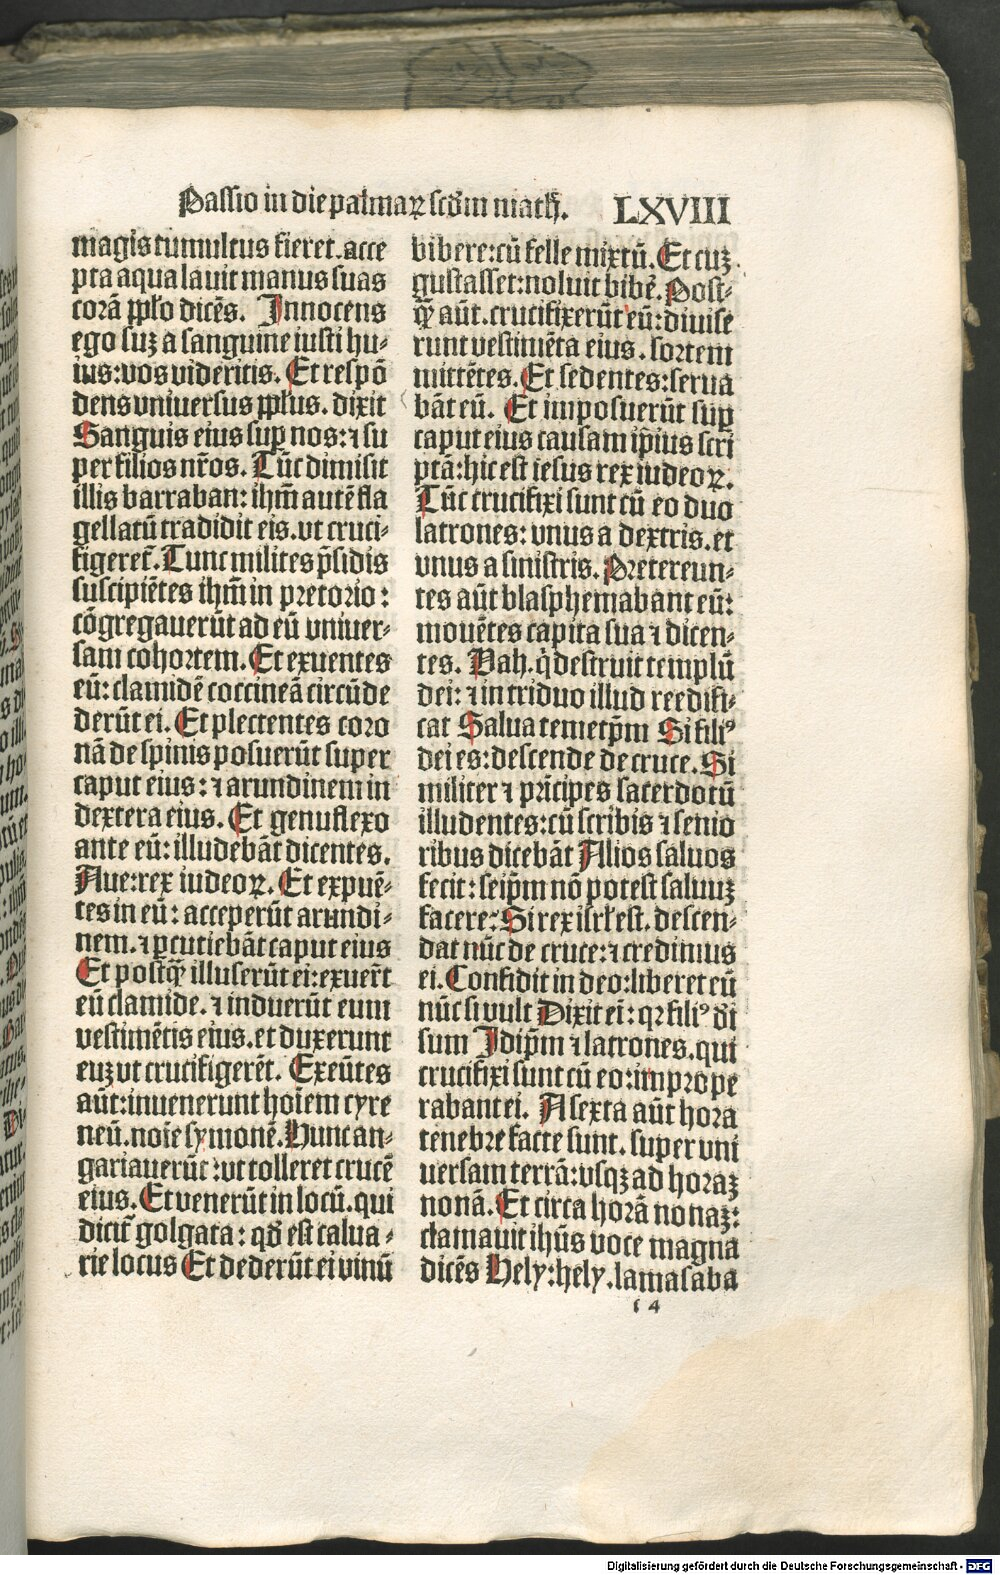 Passio in die palmaꝝ scd̓m math̓. LXVIII
magis tumultus fieret. acce
pta aqua lauit manus suas
corā pplo dicēs. Innocens
ego suꝫ a sanguine iusti hu-
ius: vos videritis. Et respō
dens vniuersus pplus. dixit
Sanguis eius suꝑ nos: ⁊ su
per filios nr̄os. Tūc dimisit
illis barraban: ihm̄ autē fla
gellatū tradidit eis. vt cruci-
figeret̄. Tunc milites p̄sidis
suscipiētes ihm̄ in pretorio:
cōgregauerūt ad eū vniuer-
sam cohortem. Et exuentes
eū: clamidē coccineā circūde
derūt ei. Et plectentes coro
nā de spinis posuerūt super
caput eius: ⁊ arundinem in
dextera eius. Et genuflexo
ante eū: illudebāt dicentes.
Aue: rex iudeoꝝ. Et expuē-
tes in eū: acceperūt arundi-
nem. ⁊ ꝑcutiebāt caput eius
Et postq̄ illuserūt ei: exuer̄t
eū clamide. ⁊ induerūt eum
vestimētis eius. et duxerunt
euꝫ vt crucifigerēt. Exeūtes
aūt: inuenerunt hoīem cyre
neū. noīe symonē. Hunc an-
gariauerūt: vt tolleret crucē
eius. Et venerūt in locū. qui
dicit̄ golgata: qd̓ est calua-
rie locus Et dederūt ei vinū
bibere: cū felle mixtū. Et cuꝫ
gustasset: noluit bibē. Post-
q̄ aūt. crucifixerūt eū: diuise
runt vestimēta eius. sortem
mittētes. Et sedentes: serua
bāt eū. Et imposuerūt suꝑ
caput eius causam ipsius scri
ptā: hic est iesus rex iudeoꝝ.
Tūc crucifixi sunt cū eo duo
latrones: vnus a dextris. et
vnus a sinistris. Pretereun-
tes aūt blasphemabant eū:
mouētes capita sua ⁊ dicen-
tes. Vah. q̇ destruit templū
dei: ⁊ in triduo illud reedifi-
cat Salua temetip̄m Si filiꝰ
dei es: descende de cruce. Si
militer ⁊ prīcipes sacerdotū
illudentes: cū scribis ⁊ senio
ribus dicebāt Alios saluos
fecit: seip̄m nō potest saluuꝫ
facere: Si rex isrl̄ est. descen-
dat nūc de cruce: ⁊ credimus
ei. Confidit in deo: liberet eū
nūc si vult Dixit ei: qꝛ filiꝰ d̓i
sum Idip̄m ⁊ latrones. qui
crucifixi sunt cū eo: imprope
rabant ei. A sexta aūt hora
tenebre facte sunt. super vni
uersam terrā: vsqꝫ ad horaꝫ
nonā. Et circa horā nonaꝫ:
clamauit ihūs voce magna
dicēs Hely: hely. lamasaba
i 4
Digitalisierung gefördert durch die Deutsche Forschungsgemeinschaft - DFG